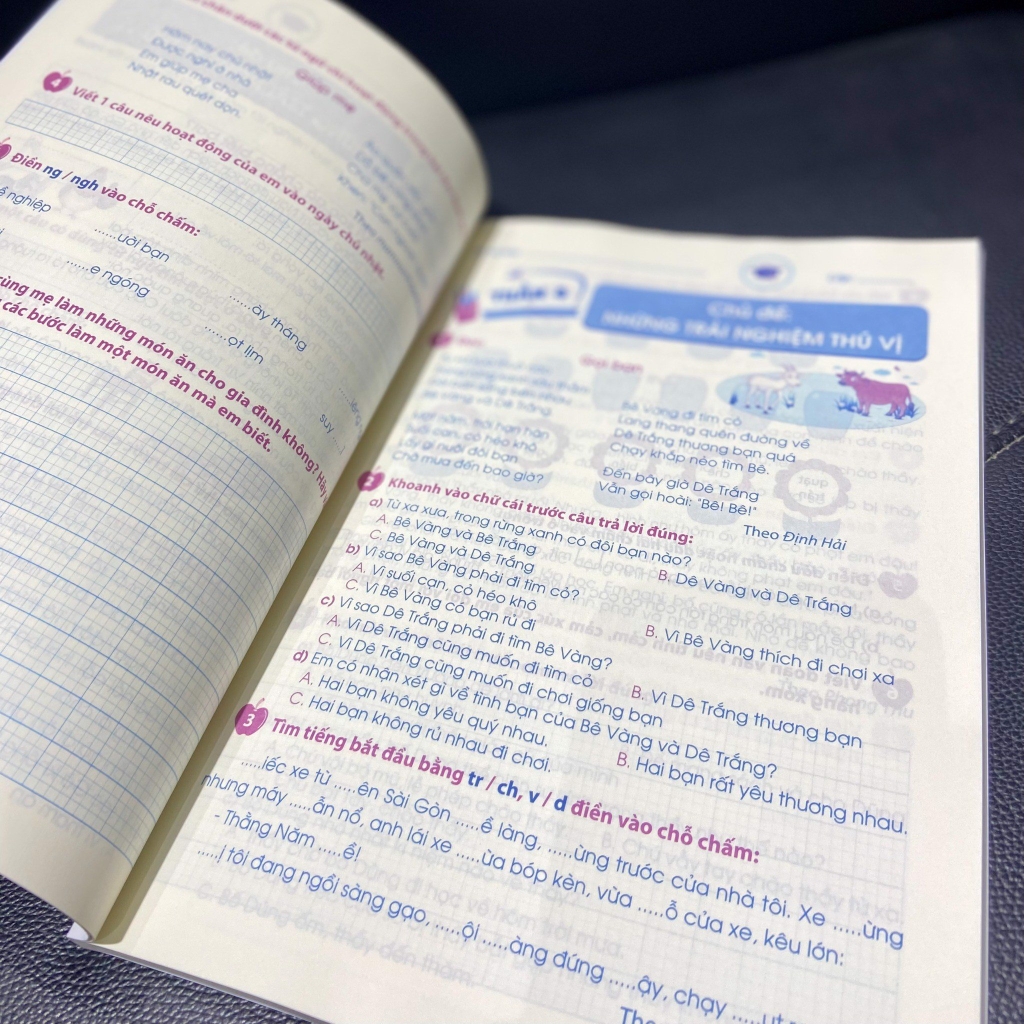 Giúp mẹ
Hôm nay chủ nhật
Được nghỉ ở nhà
Em giúp mẹ cha
Nhặt rau quét dọn.
4 Viết 1 câu nêu hoạt động của em vào ngày chủ nhật.
Điền ng / ngh vào chỗ chấm:
nghiệp
......ười bạn
......ày tháng
......e ngóng
......ọt lịm
suy
cùng mẹ làm những món ăn cho gia đình không? Hãy
các bước làm một món ăn mà em biết.
Chủ đề:
NHỮNG TRẢI NGHIỆM THÚ VỊ
Gọi bạn
hạn hán
cỏ héo khô
lấy gì nuôi đôi bạn
Chờ mưa đến bao giờ?
Bê Vàng đi tìm cỏ
Lang thang quên đường về
Dê Trắng thương bạn quá
Chạy khắp nẻo tìm Bê.
Đến bây giờ Dê Trắng
Vẫn gọi hoài: "Bê! Bê!"
Theo Định Hải
2 Khoanh vào chữ cái trước câu trả lời đúng:
a) Từ xa xưa, trong rừng xanh có đôi bạn nào?
A. Bê Vàng và Bê Trắng
B. Dê Vàng và Dê Trắng
C. Bê Vàng và Dê Trắng
b) Vì sao Bê Vàng phải đi tìm cỏ?
A. Vì suối cạn, cỏ héo khô
B. Vì Bê Vàng thích đi chơi xa
C. Vì Bê Vàng có bạn rủ đi
c) Vì sao Dê Trắng phải đi tìm Bê Vàng?
A. Vì Dê Trắng cũng muốn đi tìm cỏ
B. Vì Dê Trắng thương bạn
C. Vì Dê Trắng cũng muốn đi chơi giống bạn
d) Em có nhận xét gì về tình bạn của Bê Vàng và Dê Trắng?
A. Hai bạn không yêu quý nhau.
B. Hai bạn rất yêu thương nhau.
C. Hai bạn không rủ nhau đi chơi.
3 Tìm tiếng bắt đầu bằng tr / ch, v / d điền vào chỗ chấm:
.....iếc xe từ .....ên Sài Gòn .....ề làng, .....ừng trước cửa nhà tôi. Xe .....ừng
nhưng máy .....ẫn nổ, anh lái xe .....ừa bóp kèn, vừa .....ỗ cửa xe, kêu lớn:
- Thằng Năm .....ề!
.....ị tôi đang ngồi sàng gạo, .....ội .....àng đứng .....ậy, chạy